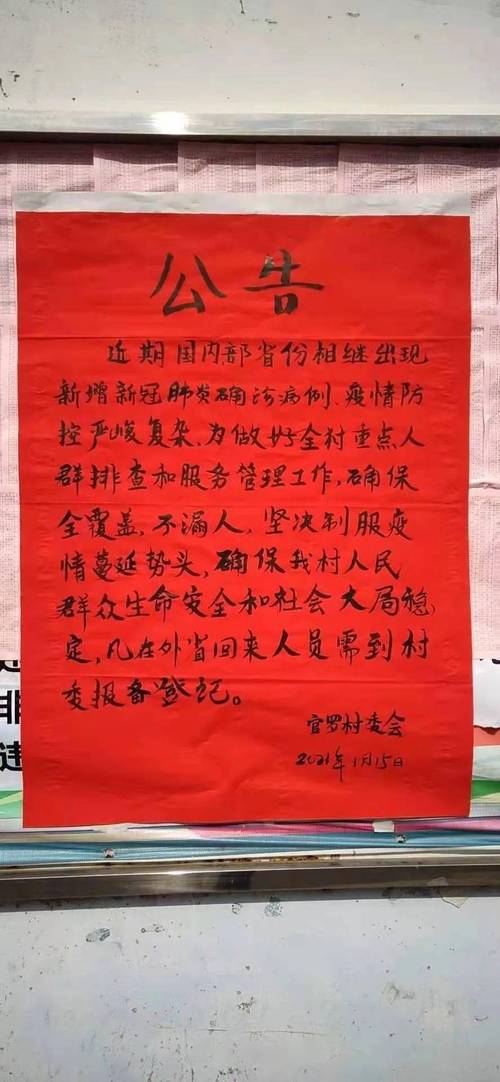 公告
近期国内部省份相继出现
新增新冠肺炎确诊病例、疫情防
控严峻复杂、为做好全村重点人
群排查和服务管理工作,确保
全覆盖,不漏人,坚决制服疫
情蔓延势头,确保我村人民
群众生命安全和社会大局稳
定,凡在外省回来人员需到村
委报备登记。
官罗村委会
2021年1月15日
非
违